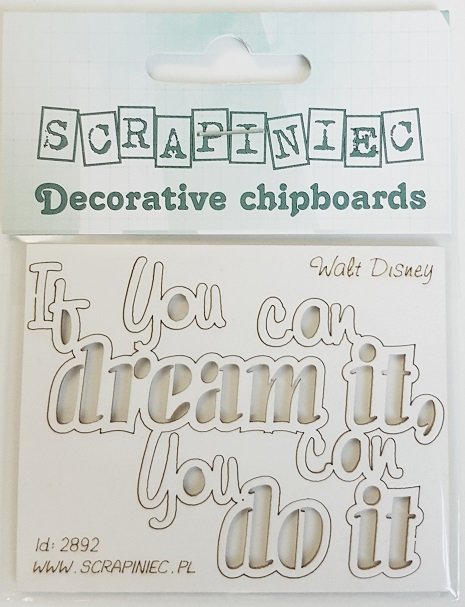 SCRAPINIEC
Decorative chipboards
Walt Disney
If You can
dream it,
You can
do it
Id: 2892
WWW.SCRAPINIEC.PL